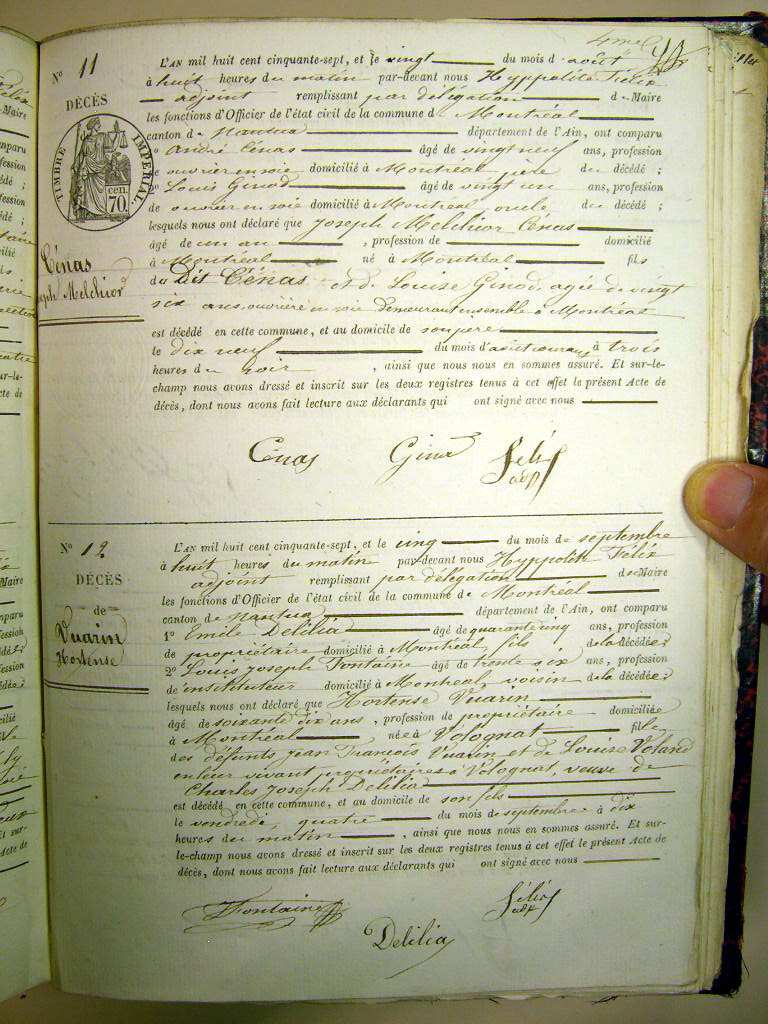 4me
N° 11
DÉCÈS
de
TIMBRE IMPÉRIAL
70 cen.
Cénas
Joseph Melchior
L'AN mil huit cent cinquante-sept, et le vingt du mois d'août
à huit heures du matin par-devant nous Hyppolite Félix
adjoint remplissant par délégation de Maire
les fonctions d'Officier de l'état civil de la commune de Montréal
canton de Nantua département de l'Ain, ont comparu
1° André Cénas âgé de vingt neuf ans, profession
de ouvrier en soie domicilié à Montréal, père du décédé ;
2° Louis Ginod âgé de vingt un ans, profession
de ouvrier en soie domicilié à Montréal oncle du décédé ;
lesquels nous ont déclaré que Joseph Melchior Cénas
âgé de un an , profession de domicilié
à Montréal né à Montréal fils
du Dit Cénas et de Louise Ginod, agée de vingt
six ans, ouvrière en soie demeurant ensemble à Montréal
est décédé en cette commune, et au domicile de son père
le dix neuf du mois d'août courant à trois
heures du soir , ainsi que nous nous en sommes assuré. Et sur-le-
champ nous avons dressé et inscrit sur les deux registres tenus à cet effet le présent Acte de
décès, dont nous avons fait lecture aux déclarants qui ont signé avec nous
Cénas Ginod Félix adj
N° 12
DÉCÈS
de
Vuarin
Hortense
L'AN mil huit cent cinquante-sept, et le cinq du mois de septembre
à huit heures du matin par-devant nous Hyppolite Félix
adjoint remplissant par délégation de Maire
les fonctions d'Officier de l'état civil de la commune de Montréal
canton de Nantua département de l'Ain, ont comparu
1° Emile Delilia âgé de quarante cinq ans, profession
de propriétaire domicilié à Montréal, fils de la décédée ;
2° Louis Joseph Fontaine âgé de trente six ans, profession
de instituteur domicilié à Montréal, voisin de la décédée ;
lesquels nous ont déclaré que Hortense Vuarin
âgé de soixante dix ans , profession de propriétaire domiciliée
à Montréal née à Volognat fille
des défunts Jean François Vuarin et de Louise Voland
en leur vivant propriétaires à Volognat, veuve de
Charles Joseph Delilia
est décédé en cette commune, et au domicile de son fils
le vendredi, quatre du mois de septembre à dix
heures du matin , ainsi que nous nous en sommes assuré. Et sur-
le-champ nous avons dressé et inscrit sur les deux registres tenus à cet effet le présent Acte de
décès, dont nous avons fait lecture aux déclarants qui ont signé avec nous
Fontaine Félix adj
Delilia